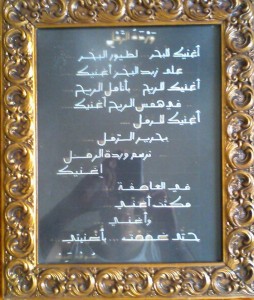 وردة الرمل
أغنيك البحر لطيور البحر
على زبد البحر أغنيك
أغنيك الريح بأنامل الريح
في همس الريح أغنيك
أغنيك للرمل
بحرير الرمل
ترسم وردة الرمل
أغنيك
في العاصفة
مكنت أغني
وأغني
حتى غصصت ... بأغنيتي